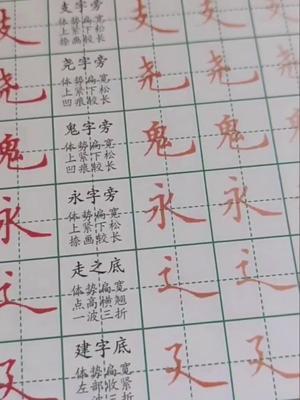 支
支字旁
体势偏宽
上紧下松
捺画较长
支 支 支
尧
尧字旁
体势偏宽
上紧下松
凹痕较长
尧 尧 尧
鬼
鬼字旁
体势偏宽
上紧下松
凹痕较长
鬼 鬼 鬼
永
永字旁
体势偏宽
上紧下松
捺画较长
永 永
辶
走之底
体势偏宽
点高横翘
一波三折
辶 辶
廴
建字底
体势偏宽
左部收紧
廴 廴